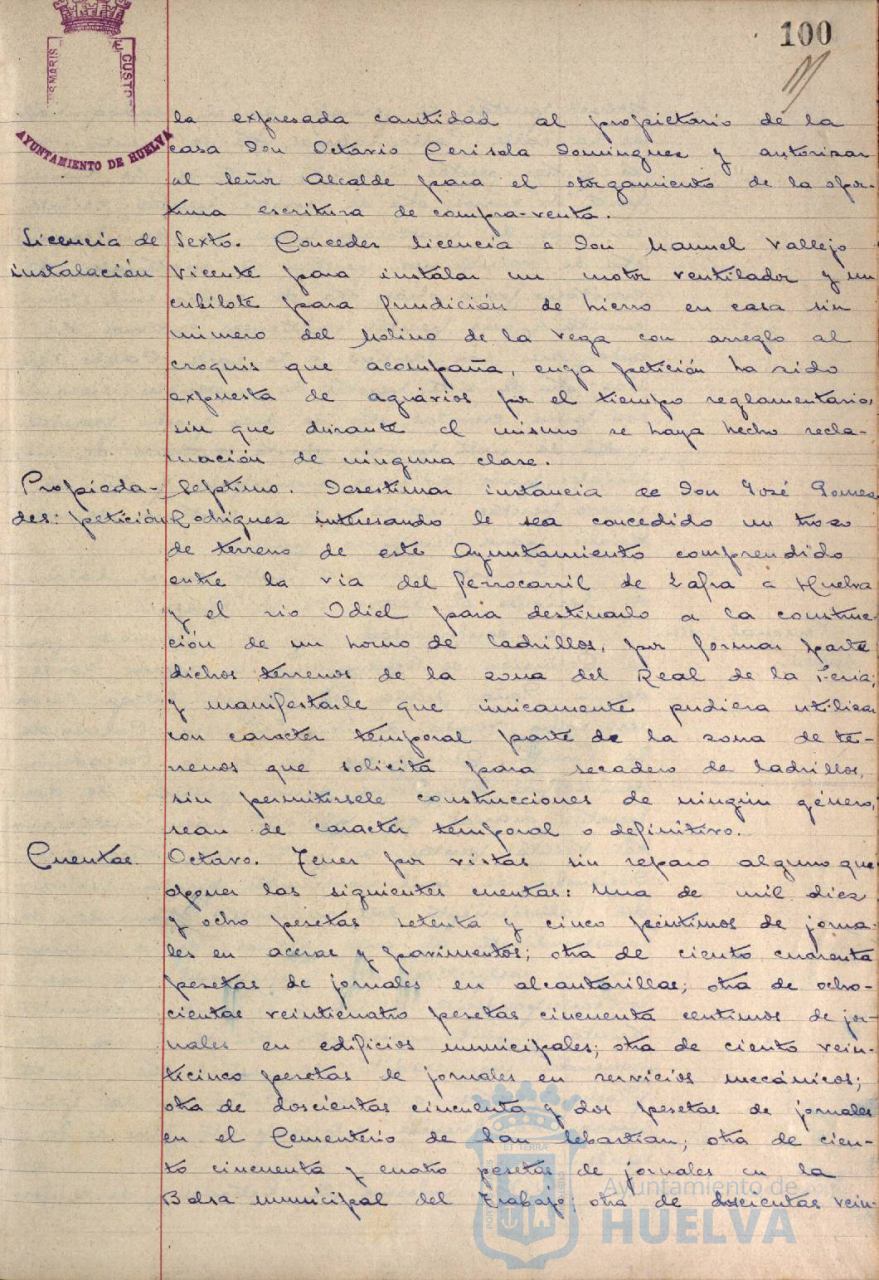 100
SIEMPRIS
CUSTO
AYUNTAMIENTO DE HUELVA
la expresada cantidad al propietario de la
casa Don Octavio Cerisola Dominguez y autorizar
al Señor Alcalde para el otorgamiento de la opor-
tuna escritura de compra-venta.
Licencia de
instalación
Sexto. Conceder licencia a Don Manuel Vallejo
Vicente para instalar un motor ventilador y un
cubilote para fundición de hierro en casa sin
número del Molino de la Vega con arreglo al
croquis que acompaña, cuya petición ha sido
expuesta de agravios por el tiempo reglamentario,
sin que durante el mismo se haya hecho recla-
mación de ninguna clase.
Propieda-
des: petición
Septimo. Desestimar instancia de Don José Gomez
Rodriguez interesando le sea concedido un trozo
de terreno de este Ayuntamiento comprendido
entre la via del ferrocarril de Zafra a Huelva
y el rio Odiel para destinarlo a la construc-
ción de un horno de ladrillos, por formar parte
dichos terrenos de la zona del Real de la Feria;
y manifestarle que únicamente pudiera utilizar
con caracter temporal parte de la zona de te-
rrenos que solicita para secadero de ladrillos,
sin permitirsele construcciones de ningún género,
sean de caracter temporal o definitivo.
Cuentas
Octavo. Tener por vistas sin reparo alguno que
oponer las siguientes cuentas: Una de mil diez
y ocho pesetas setenta y cinco céntimos de jorna-
les en aceras y pavimentos; otra de ciento cuarenta
pesetas de jornales en alcantarillas; otra de ocho-
cientas veinticuatro pesetas cincuenta centimos de jor-
nales en edificios municipales; otra de ciento vein-
ticinco pesetas de jornales en servicios mecánicos;
otra de doscientas cincuenta y dos pesetas de jornales
en el Cementerio de San Sebastian; otra de cien-
to cincuenta y cuatro pesetas de jornales en la
Bolsa municipal del Trabajo; otra de doscientas vein-
Ayuntamiento de
HUELVA